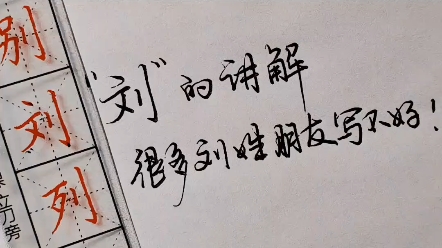 别
刘
列
立刀旁
"刘"的讲解
很多刘姓朋友写不好！